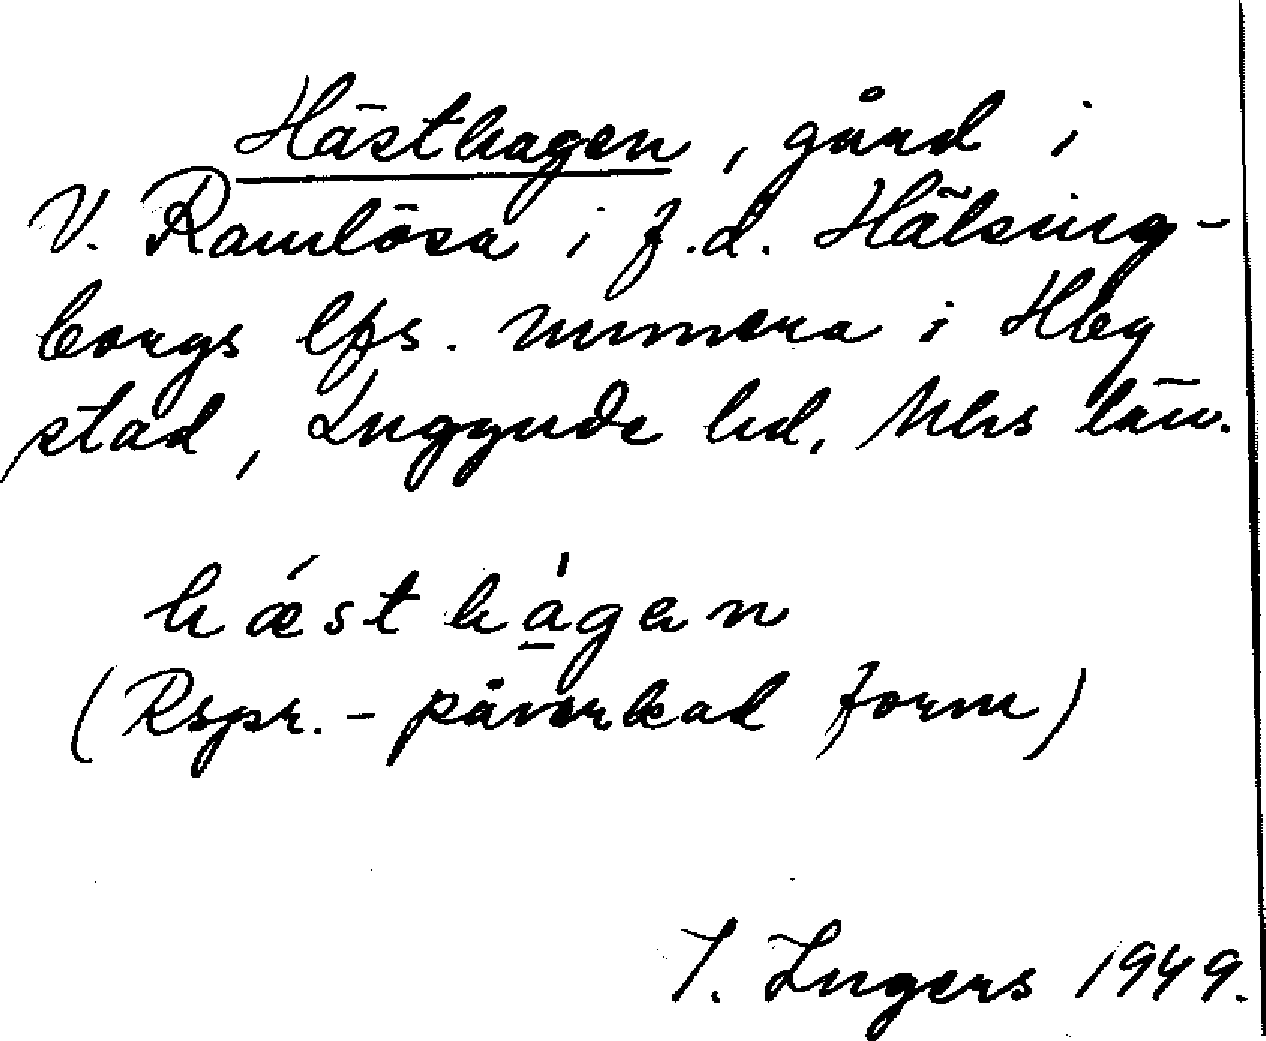 Hästhagen, gård i
V. Ramlösa i f.d. Hälsing-
borgs lfs. numera i Hbg
stad, Luggude hd, Mhs län.
hǽst hàgen
(Rspr.-påverkad form)
I. Ingers 1949.